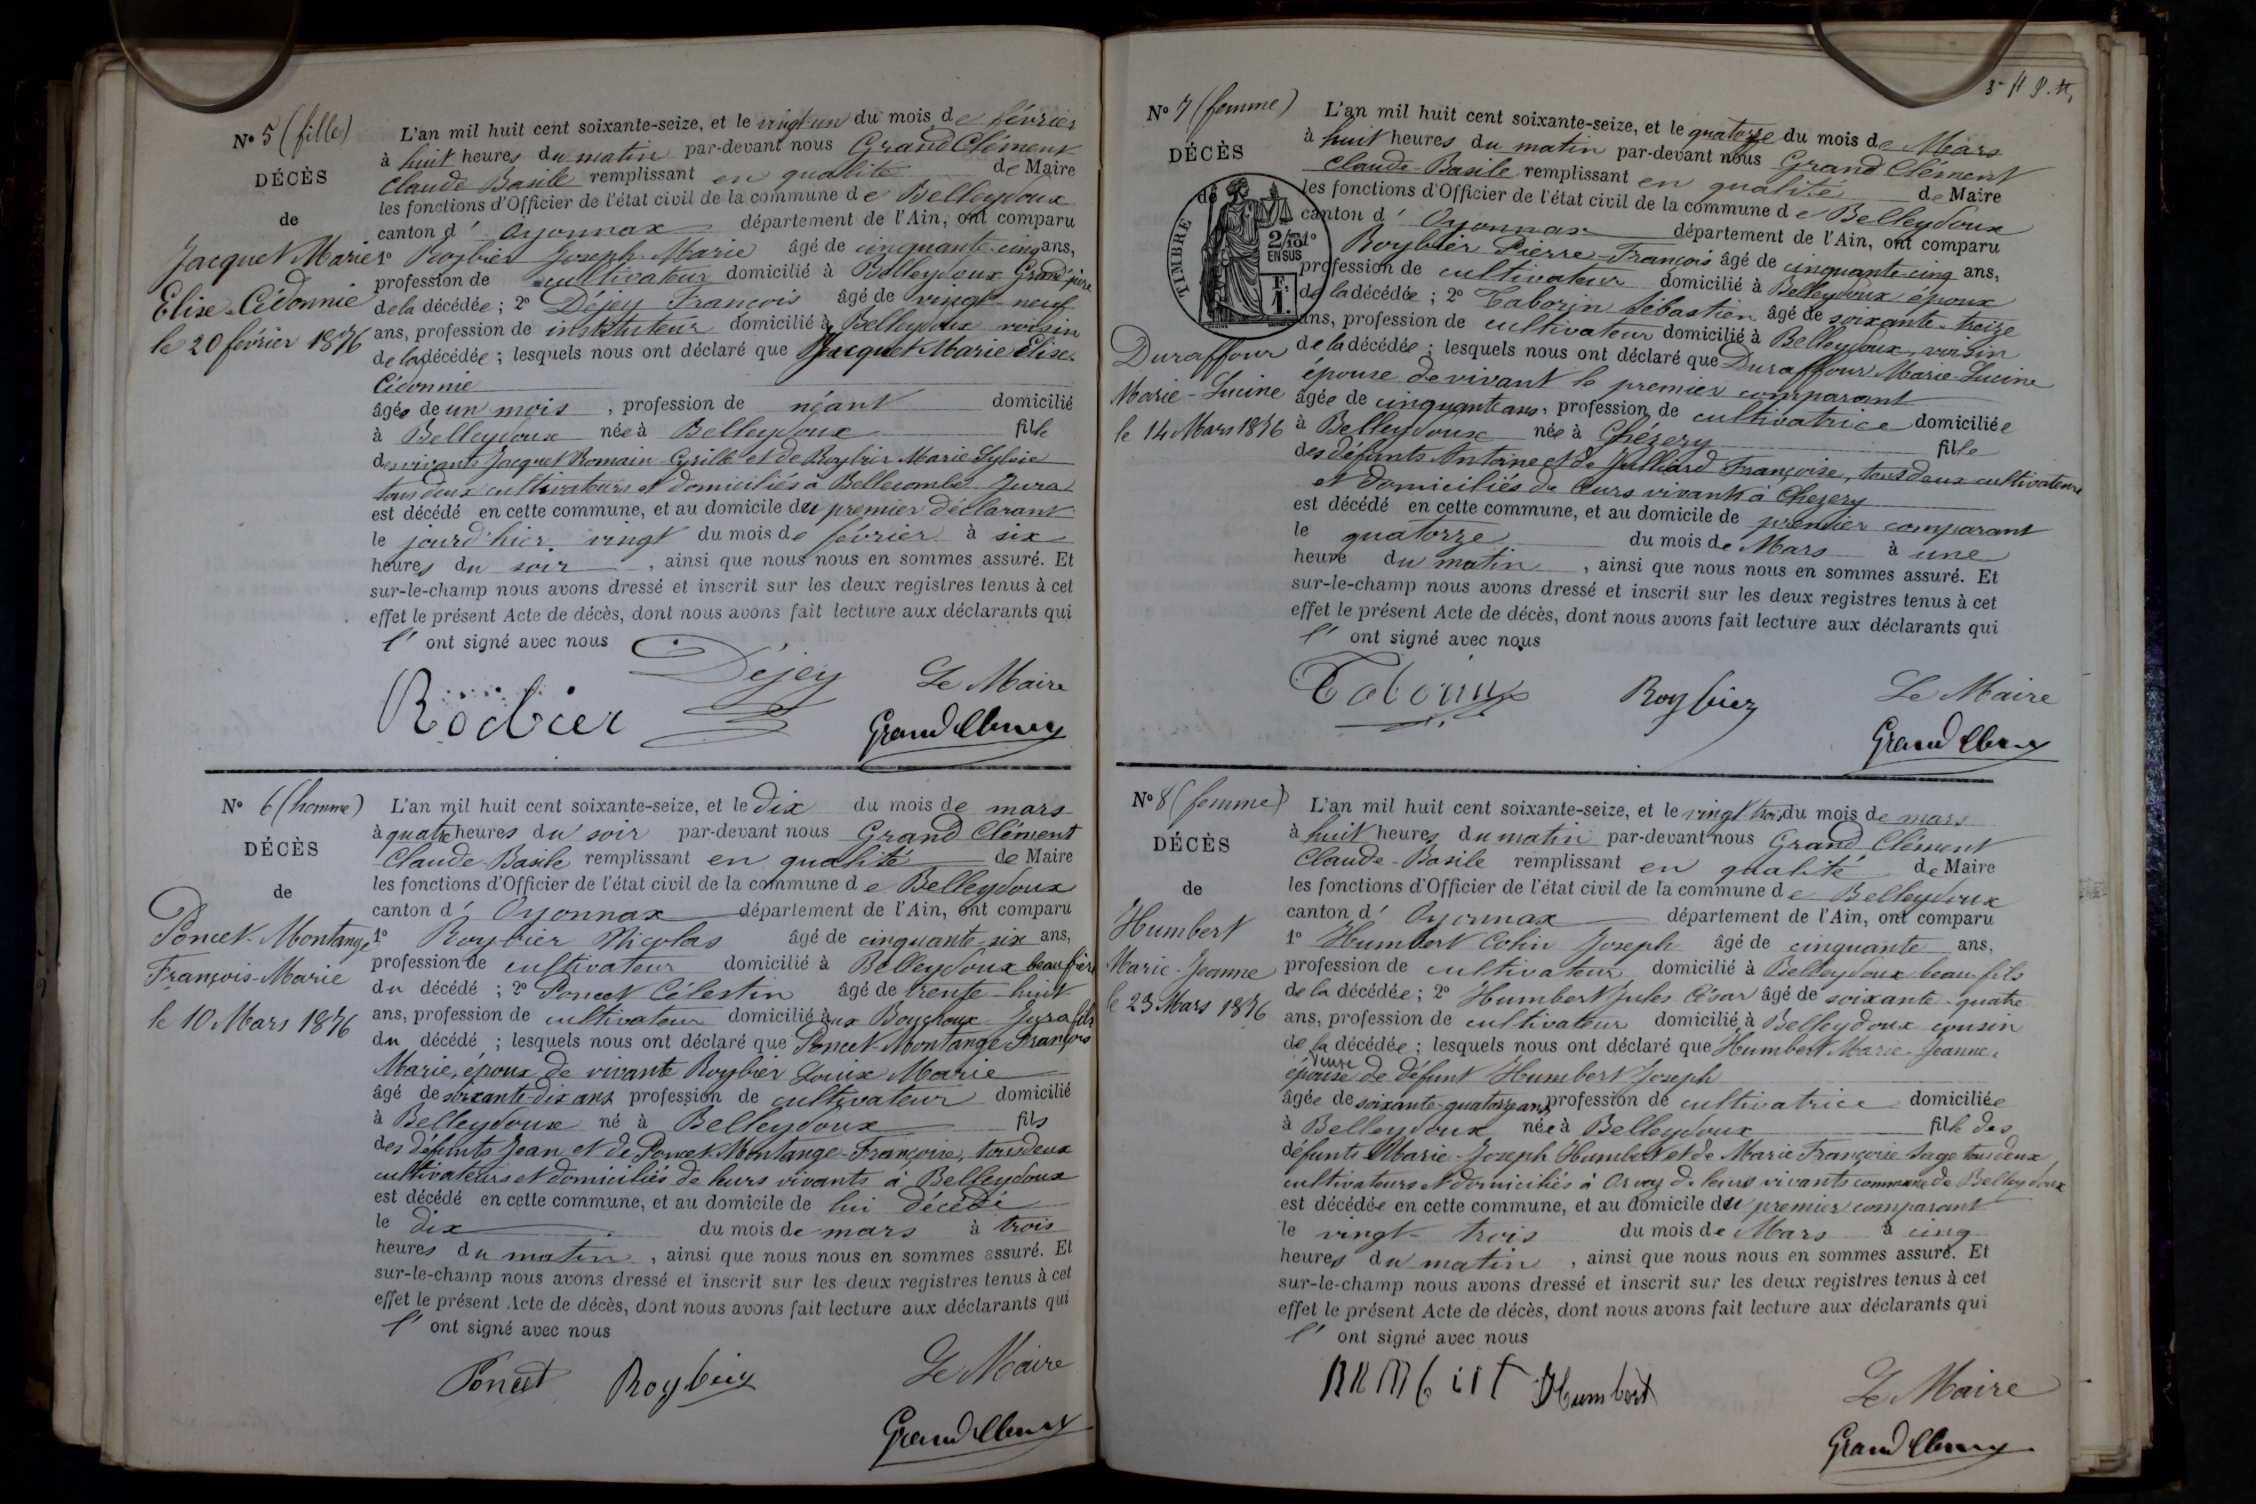 N° 5 (fille)
DÉCÈS
de
Jacquet Marie
Elise-Cédonnie
le 20 février 1876
L'an mil huit cent soixante-seize, et le vingt-un du mois de février
à huit heures du matin par-devant nous Grand Clément
Claude Basile remplissant en qualité de Maire
les fonctions d'Officier de l'état civil de la commune de Belleydoux
canton d' Oyonnax département de l'Ain, ont comparu
1° Roybier Joseph-Marie âgé de cinquante-cinq ans,
profession de cultivateur domicilié à Belleydoux Grand'père
de la décédée ; 2° Déjey François âgé de vingt-neuf
ans, profession de instituteur domicilié à Belleydoux voisin
de la décédée ; lesquels nous ont déclaré que Jacquet Marie Elise-
Cédonnie
âgée de un mois , profession de néant domicilié
à Belleydoux née à Belleydoux fille
des vivants Jacquet Romain Cyrille et de Roybier Marie Sylvie
tous deux cultivateurs et domiciliés à Bellecombe Jura
est décédé en cette commune, et au domicile du premier déclarant
le jourd'hier vingt du mois de février à six
heures du soir , ainsi que nous nous en sommes assuré. Et
sur-le-champ nous avons dressé et inscrit sur les deux registres tenus à cet
effet le présent Acte de décès, dont nous avons fait lecture aux déclarants qui
l' ont signé avec nous
Déjey Le Maire
Rodbier Grand Clément
N° 6 (homme)
DÉCÈS
de
Poncet-Montange
François-Marie
le 10 Mars 1876
L'an mil huit cent soixante-seize, et le dix du mois de mars
à quatre heures du soir par-devant nous Grand Clément
Claude-Basile remplissant en qualité de Maire
les fonctions d'Officier de l'état civil de la commune de Belleydoux
canton d' Oyonnax département de l'Ain, ont comparu
1° Roybier Nicolas âgé de cinquante-six ans,
profession de cultivateur domicilié à Belleydoux beau frère
du décédé ; 2° Poncet Célestin âgé de trente-huit
ans, profession de cultivateur domicilié aux Bouchoux Jura fils
du décédé ; lesquels nous ont déclaré que Poncet-Montange François
Marie, époux de vivante Roybier Louise Marie
âgé de soixante-dix ans, profession de cultivateur domicilié
à Belleydoux né à Belleydoux fils
des défunts Jean et de Poncet Montange-Françoise, tous deux
cultivateurs et domiciliés de leurs vivants à Belleydoux
est décédé en cette commune, et au domicile de lui décédé
le dix du mois de mars à trois
heures du matin , ainsi que nous nous en sommes assuré. Et
sur-le-champ nous avons dressé et inscrit sur les deux registres tenus à cet
effet le présent Acte de décès, dont nous avons fait lecture aux déclarants qui
l' ont signé avec nous
Poncet Roybier Le Maire
Grand Clément
N° 7 (femme)
DÉCÈS
de
TIMBRE
2/10
EN SUS
F.
1.
Duraffour
Marie-Lucine
le 14 Mars 1876
L'an mil huit cent soixante-seize, et le quatorze du mois de Mars
à huit heures du matin par-devant nous Grand Clément
Claude-Basile remplissant en qualité de Maire
les fonctions d'Officier de l'état civil de la commune de Belleydoux
canton d' Oyonnax département de l'Ain, ont comparu
1° Roybier Pierre-François âgé de cinquante-cinq ans,
profession de cultivateur domicilié à Belleydoux époux
de la décédée ; 2° Taborin Sébastien âgé de soixante-treize
ans, profession de cultivateur domicilié à Belleydoux, voisin
de la décédée ; lesquels nous ont déclaré que Duraffour Marie-Lucine
épouse de vivant le premier comparant
âgée de cinquante ans, profession de cultivatrice domiciliée
à Belleydoux née à Chézery fille
des défunts Antoine et de Julliard Françoise, tous deux cultivateurs
et domiciliés de leurs vivants à Chezery
est décédé en cette commune, et au domicile de premier comparant
le quatorze du mois de Mars à une
heure du matin , ainsi que nous nous en sommes assuré. Et
sur-le-champ nous avons dressé et inscrit sur les deux registres tenus à cet
effet le présent Acte de décès, dont nous avons fait lecture aux déclarants qui
l' ont signé avec nous
Taborin Roybier Le Maire
Grand Clément
N° 8 (femme)
DÉCÈS
de
Humbert
Marie-Jeanne
le 23 Mars 1876
L'an mil huit cent soixante-seize, et le vingt-trois du mois de mars
à huit heures du matin par-devant nous Grand Clément
Claude-Basile remplissant en qualité de Maire
les fonctions d'Officier de l'état civil de la commune de Belleydoux
canton d' Oyonnax département de l'Ain, ont comparu
1° Humbert Colin Joseph âgé de cinquante ans,
profession de cultivateur domicilié à Belleydoux beau-fils
de la décédée ; 2° Humbert Jules César âgé de soixante-quatre
ans, profession de cultivateur domicilié à Belleydoux cousin
de la décédée ; lesquels nous ont déclaré que Humbert Marie-Jeanne,
veuve
épouse de défunt Humbert Joseph
âgée de soixante-quatorze ans, profession de cultivatrice domiciliée
à Belleydoux née à Belleydoux fille des
défunts Marie-Joseph Humbert et de Marie Françoise Sage tous deux
cultivateurs et domiciliés à Orvoz de leurs vivants commune de Belleydoux
est décédée en cette commune, et au domicile du premier comparant
le vingt-trois du mois de Mars à cinq
heures du matin , ainsi que nous nous en sommes assuré. Et
sur-le-champ nous avons dressé et inscrit sur les deux registres tenus à cet
effet le présent Acte de décès, dont nous avons fait lecture aux déclarants qui
l' ont signé avec nous
Humbert Le Maire
Grand Clément